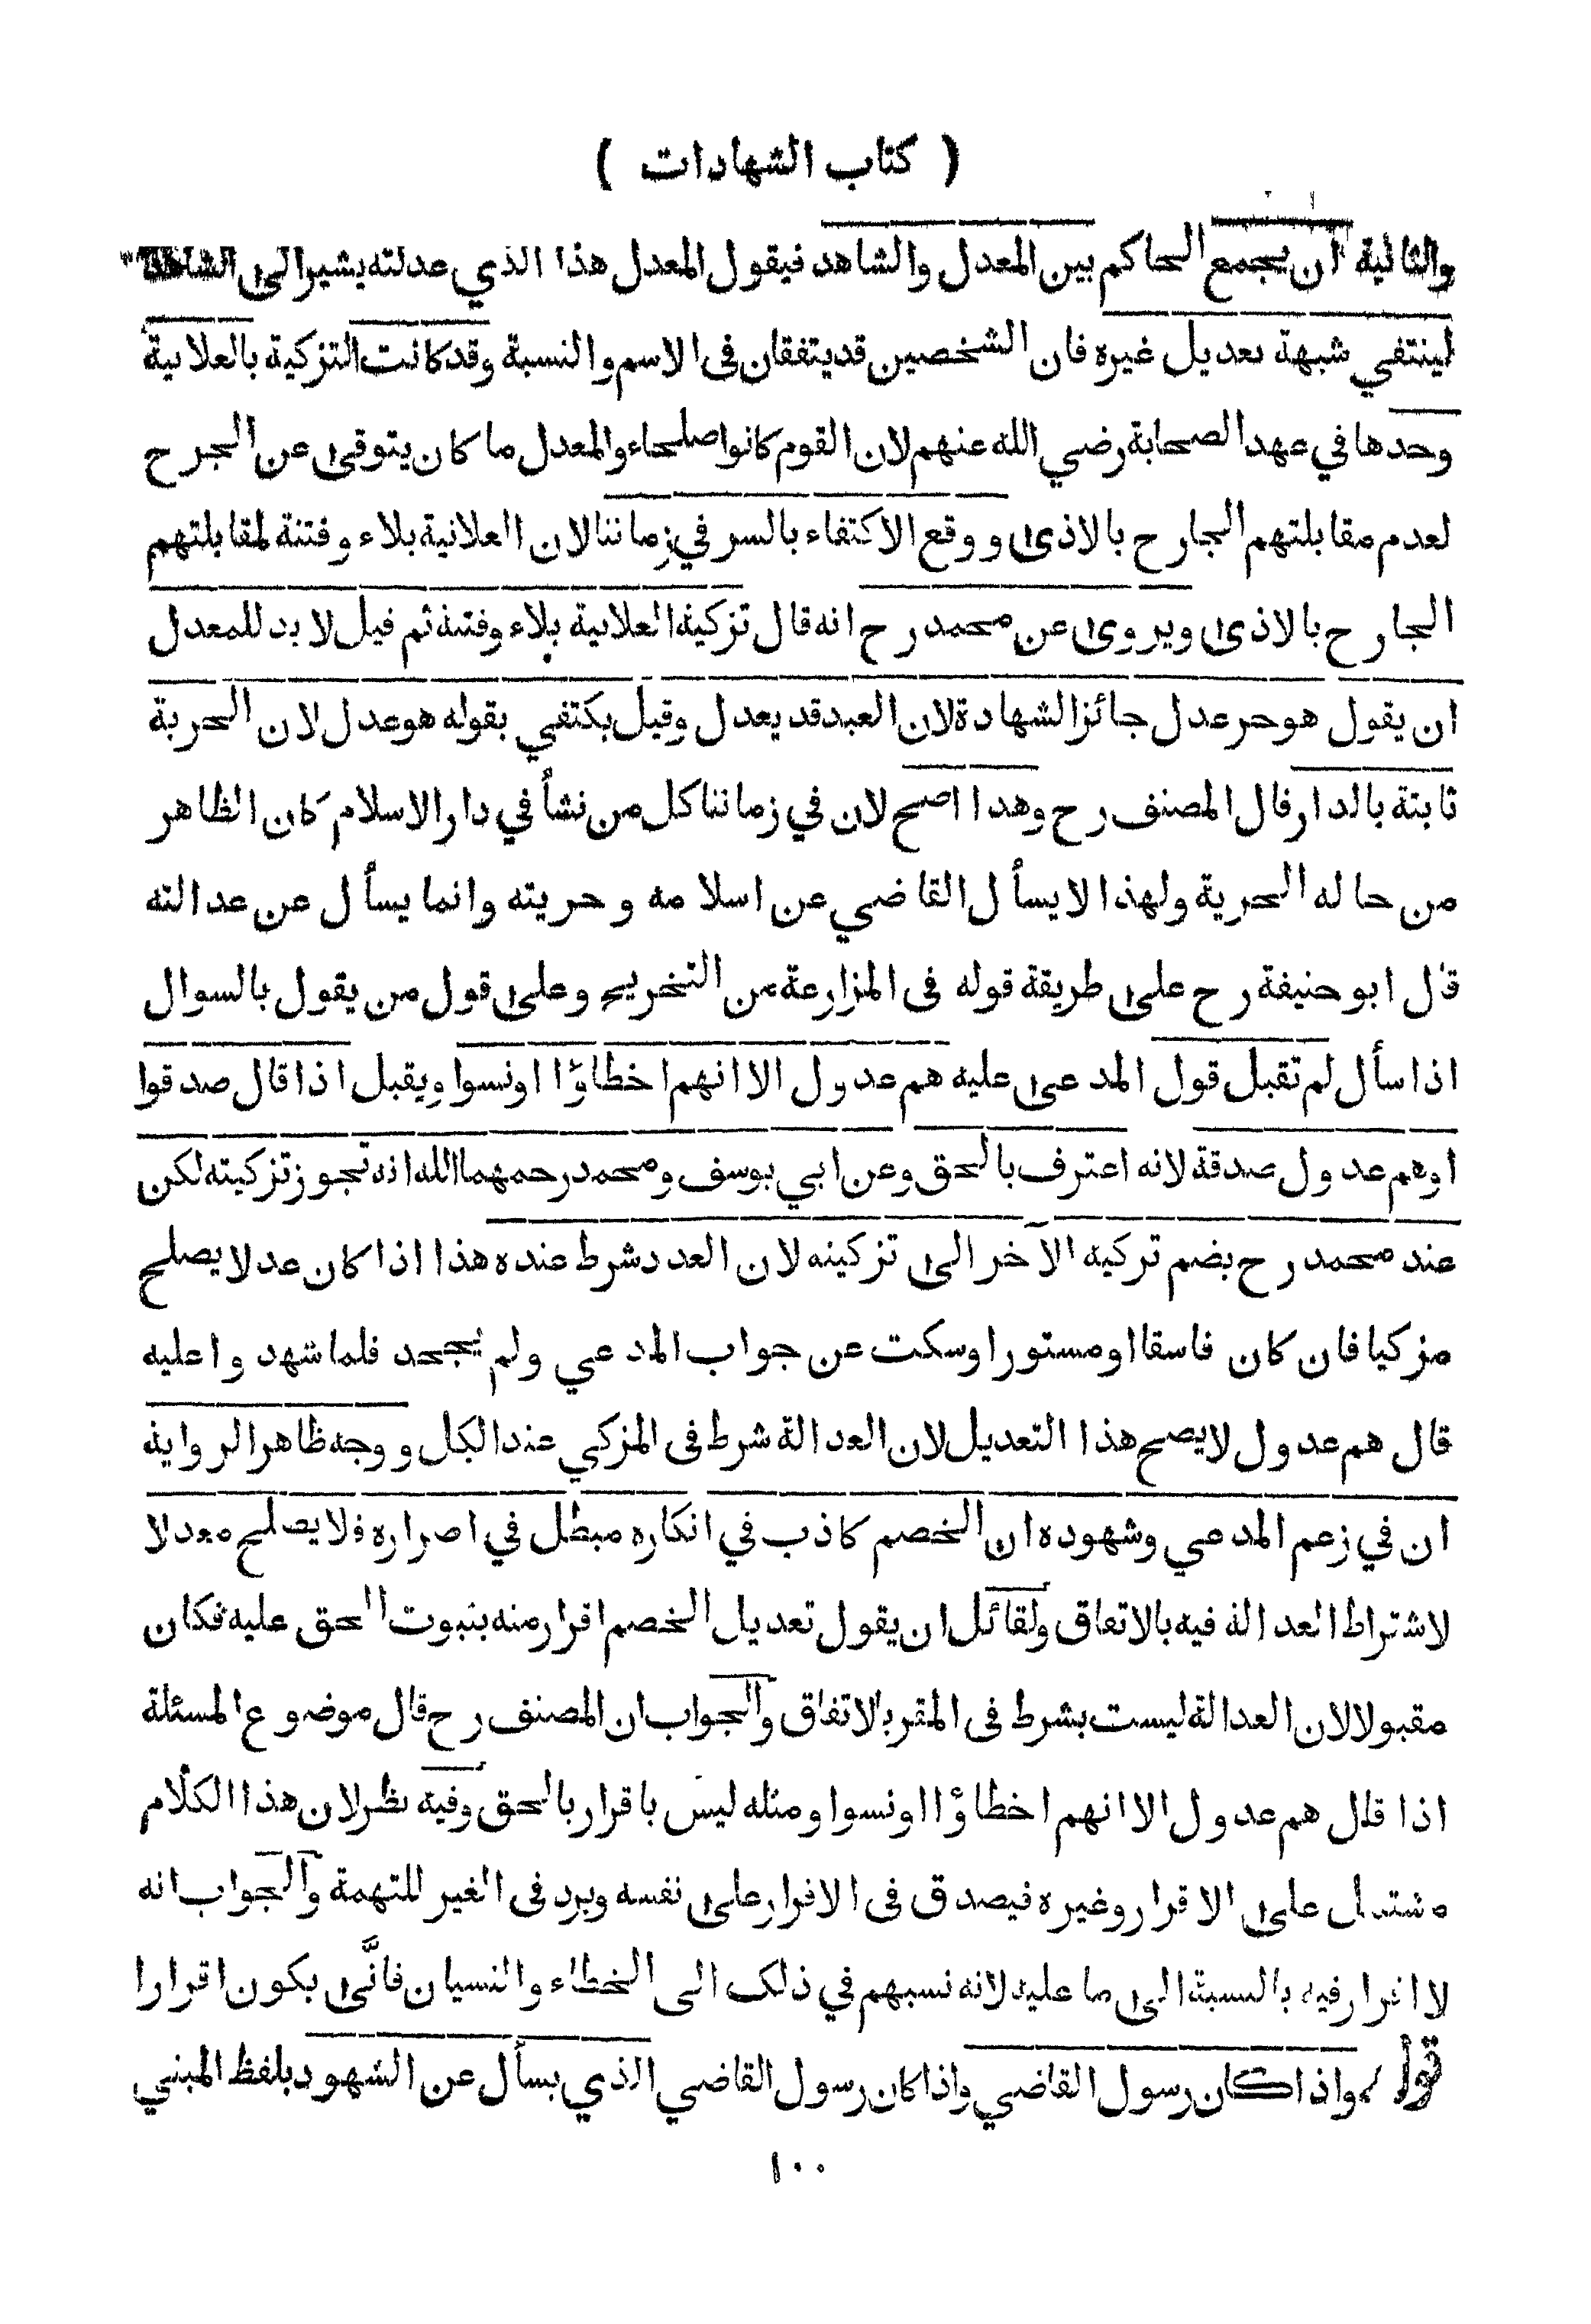 ( كتاب الشهادات )
والثانية ان يجمع الحاكم بين المعدل والشاهد فيقول المعدل هذا الذي عدلته يشير الى الشاهد
لينتفي شبهة تعديل غيره فان الشخصين قد يتفقان في الاسم والنسبة وقد كانت التزكية بالعلانية
وحدها في عهد الصحابة رضي الله عنهم لان القوم كانوا صلحاء والمعدل ما كان يتوقى عن الجرح
لعدم مقابلتهم الجارح بالاذى ووقع الاكتفاء بالسر في زماننا لان العلانية بلاء وفتنة لمقابلتهم
الجارح بالاذى ويروى عن محمد رح انه قال تزكية العلانية بلاء وفتنة ثم قيل لا بد للمعدل
ان يقول هو حر عدل جائز الشهادة لان العبد قد يعدل وقيل يكتفي بقوله هو عدل لان الحرية
ثابتة بالدار قال المصنف رح وهذا اصح لان في زماننا كل من نشأ في دار الاسلام كان الظاهر
من حاله الحرية ولهذا لا يسأل القاضي عن اسلامه وحريته وانما يسأل عن عدالته
قال ابو حنيفة رح على طريقة قوله في المزارعة من التخريج وعلى قول من يقول بالسوال
اذا سأل لم تقبل قول المدعى عليه هم عدول الا انهم اخطاؤا او نسوا ويقبل اذا قال صدقوا
او هم عدول صدقة لانه اعترف بالحق وعن ابي يوسف ومحمد رحمهما الله انه تجوز تزكيته لكن
عند محمد رح يضم تزكية الآخر الى تزكيته لان العدد شرط عنده هذا اذا كان عدلا يصلح
مزكيا فان كان فاسقا او مستورا وسكت عن جواب المدعي ولم يجحد فلما شهدوا عليه
قال هم عدول لا يصح هذا التعديل لان العدالة شرط في المزكي عند الكل ووجه ظاهر الرواية
ان في زعم المدعي وشهوده ان الخصم كاذب في انكاره مبطل في اصراره فلا يصلح معدلا
لاشتراط العدالة فيه بالاتفاق ولقائل ان يقول تعديل الخصم اقرار منه بثبوت الحق عليه فكان
مقبولا لان العدالة ليست بشرط في المقر بالاتفاق والجواب ان المصنف رح قال موضوع المسئلة
اذا قال هم عدول الا انهم اخطاؤا او نسوا ومثله ليس باقرار بالحق وفيه نظر لان هذا الكلام
مشتمل على الاقرار وغيره فيصدق في الاقرار على نفسه ويرد في الغير للتهمة والجواب انه
لا اقرار فيه بالنسبة الى ما عليه لانه نسبهم في ذلك الى الخطاء والنسيان فانَّى يكون اقرارا
قوله واذا كان رسول القاضي واذا كان رسول القاضي الذي يسأل عن الشهود بلفظ المبني
١٠٠